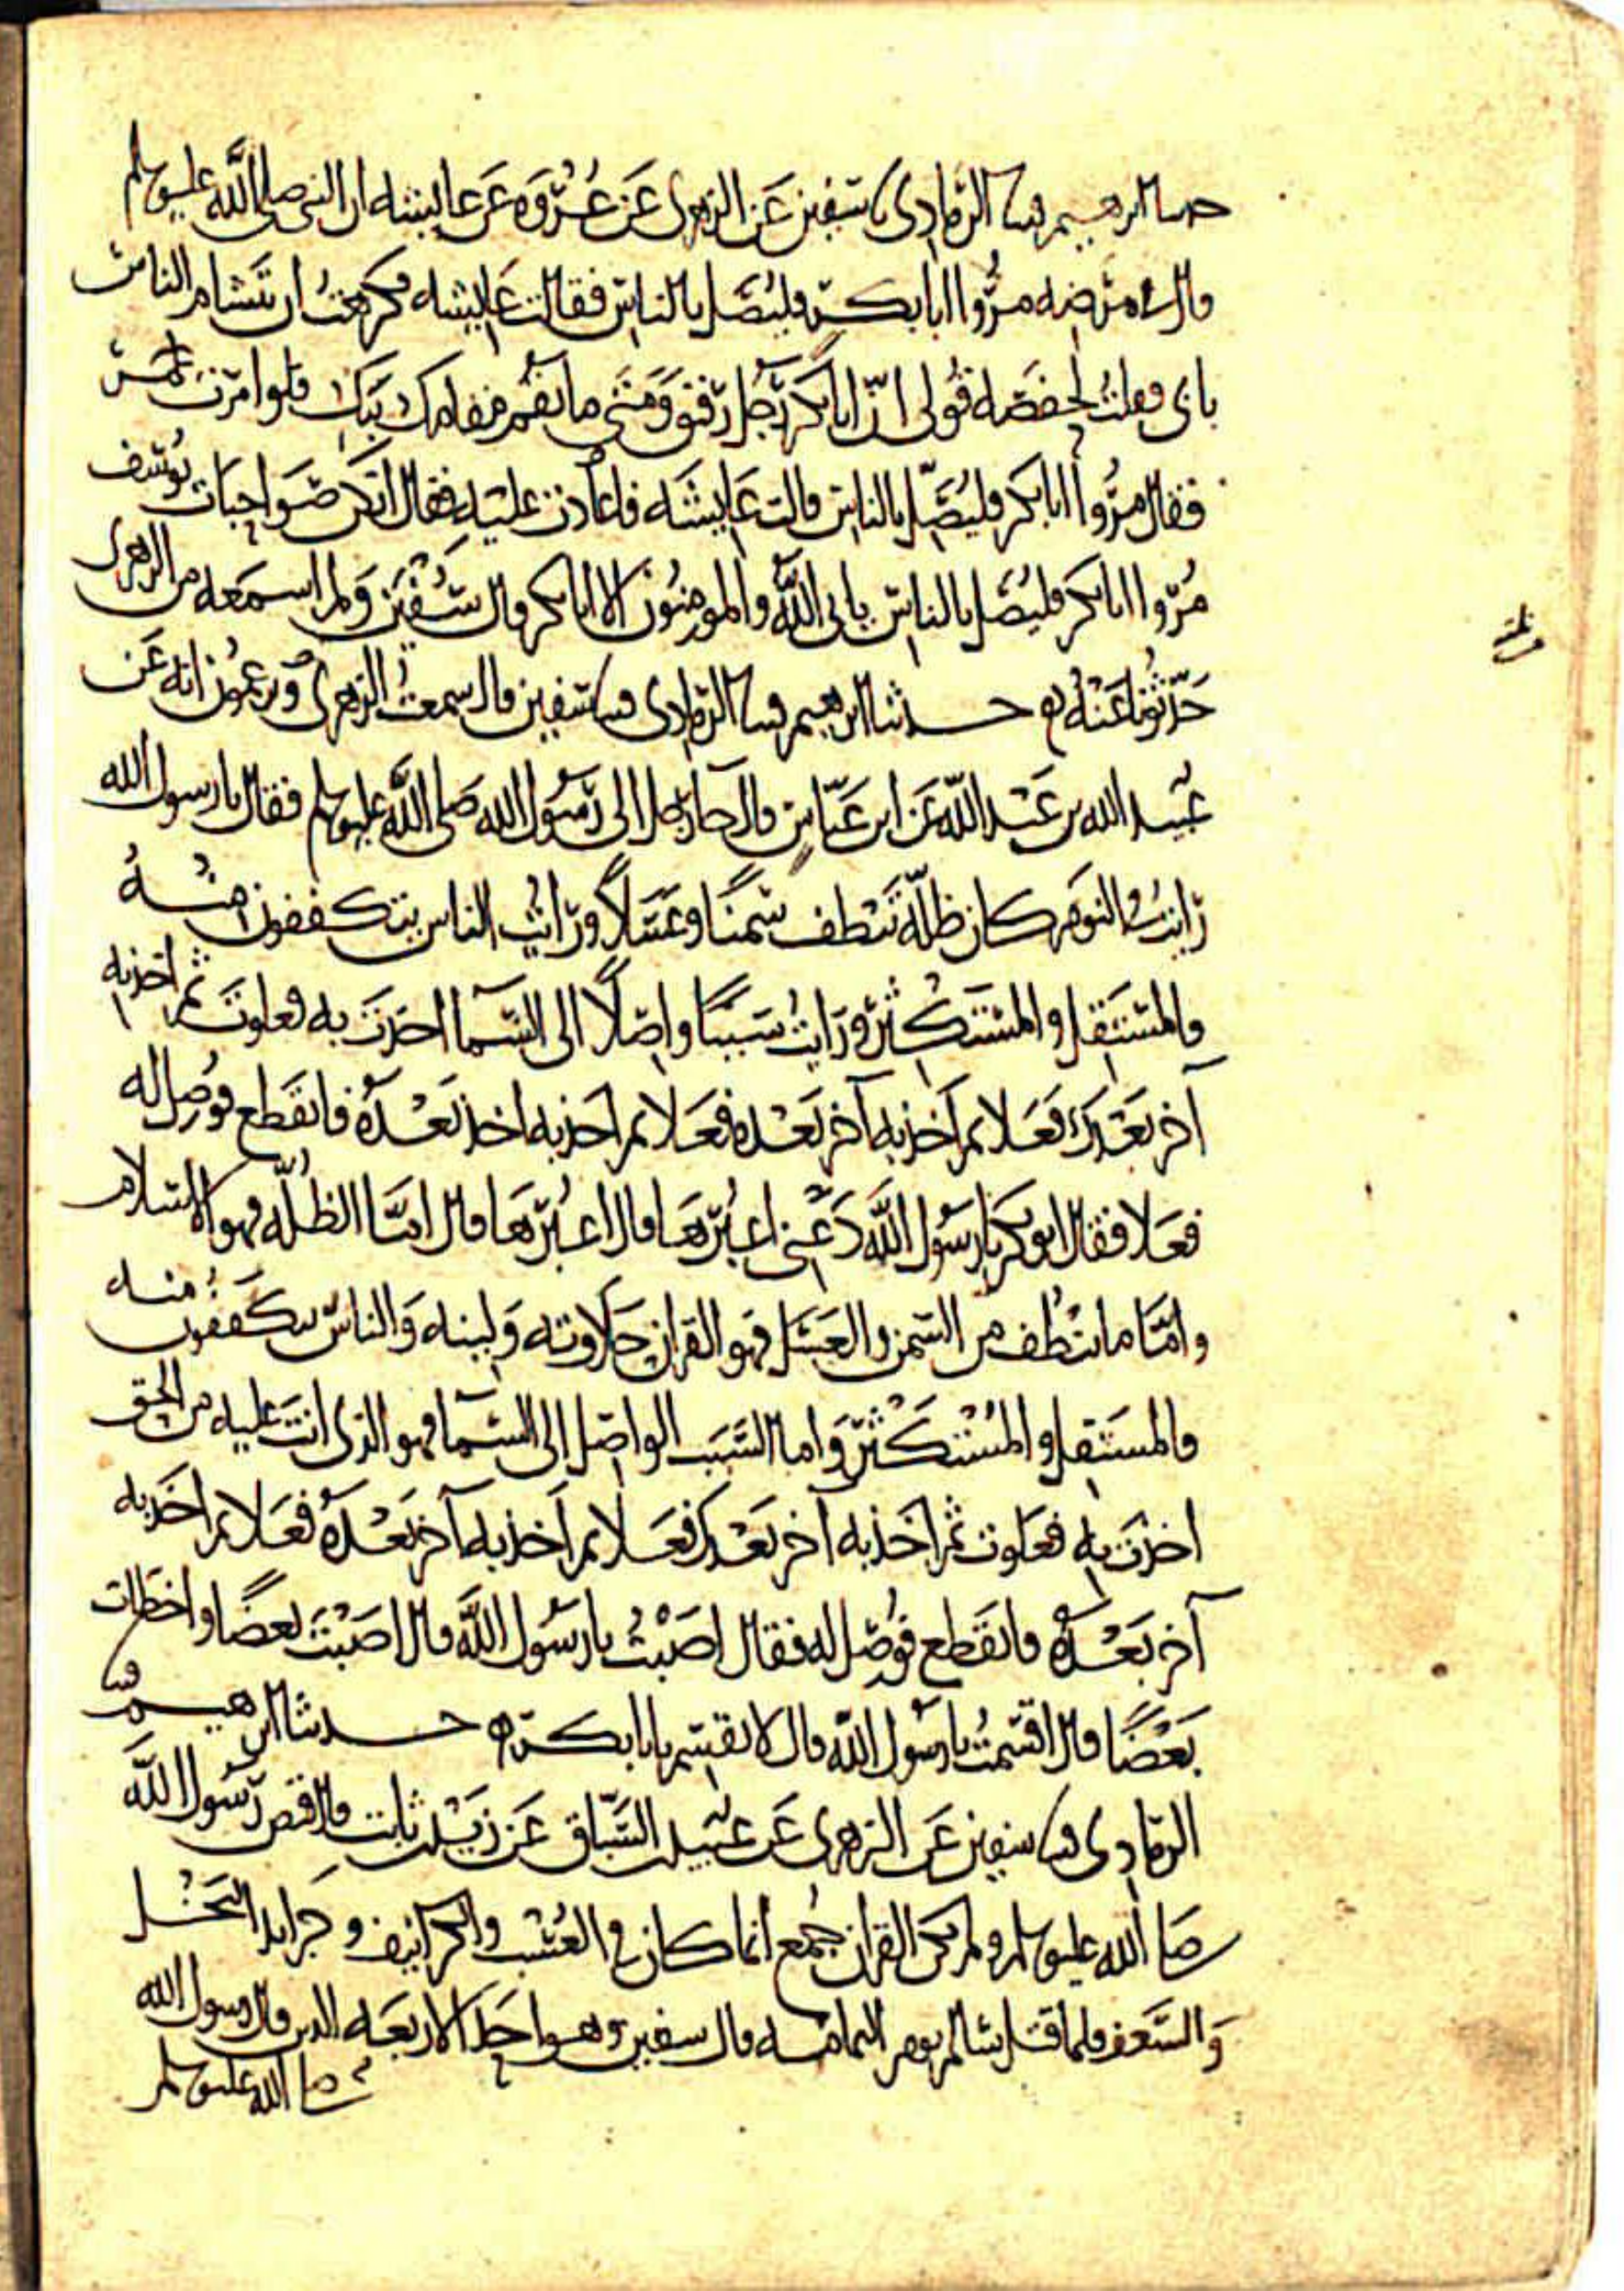 حدثنا ابرهيم قثنا الرمادي نا سفين عن الزهري عن عروة عن عايشه ان النبي صلى الله عليه وسلم
قال في مرضه مروا ابا بكر فليصل بالناس فقالت عايشه فكرهت ان يتشام الناس
بابي فقلت لحفصه قولي ان ابا بكر رجل رقيق ومتى ما يقم مقامك يبك فلو امرت عمر
فقال مروا ابا بكر فليصل بالناس قالت عايشه فاعادت عليه فقال انكن صواحبات يوسف
مروا ابا بكر فليصل بالناس يابى الله والمومنون الا ابا بكر قال سفين ولم اسمعه من الزهري
حدثونا عنه حدثنا ابرهيم قثنا الرمادي قثنا سفين قال سمعت الزهري ويزعمون انه عن
عبيد الله بن عبد الله عن ابن عباس قال جا رجل الى رسول الله صلى الله عليه وسلم فقال يا رسول الله
رايت في النوم كان ظلة تنطف سمنا وعسلا ورايت الناس يتكففون منه
والمستقل والمستكثر ورايت سببا واصلا الى السما اخذت به فعلوت ثم اخذ به
آخر بعدك فعلا ثم اخذ به آخر بعده فعلا ثم اخذ به اخذ بعده فانقطع فوصل له
فعلا فقال ابو بكر يا رسول الله دعني اعبرها قال اعبرها قال امّا الظلة فهو الاسلام
وامّا ما ينطف من السمن والعسل فهو القران حلاوته ولينه والناس يتكففون منه
والمستقل والمستكثر واما السبب الواصل الى السما فهو الذي انت عليه من الحق
اخذت به فعلوت ثم اخذ به آخر بعدك فعلا ثم اخذ به آخر بعده فعلا ثم اخذ به
آخر بعده فانقطع فوصل له فقال اصبت يا رسول الله قال اصبت بعضا واخطات
بعضا قال اقسمت يا رسول الله قال لا تقسم يا با بكر حدثنا ابرهيم قثنا
الرمادي قثنا سفين عن الزهري عن عبيد السباق عن زيد بن ثابت قال قبض رسول الله
صلى الله عليه وسلم ولم يكن القران جمع انما كان في العسب والكرانيف وجرايد النخل
والسعف فلما قتل سالم يوم اليمامه قال سفين وهو احد الاربعه الذين قال رسول الله
صلى الله عليه وسلم